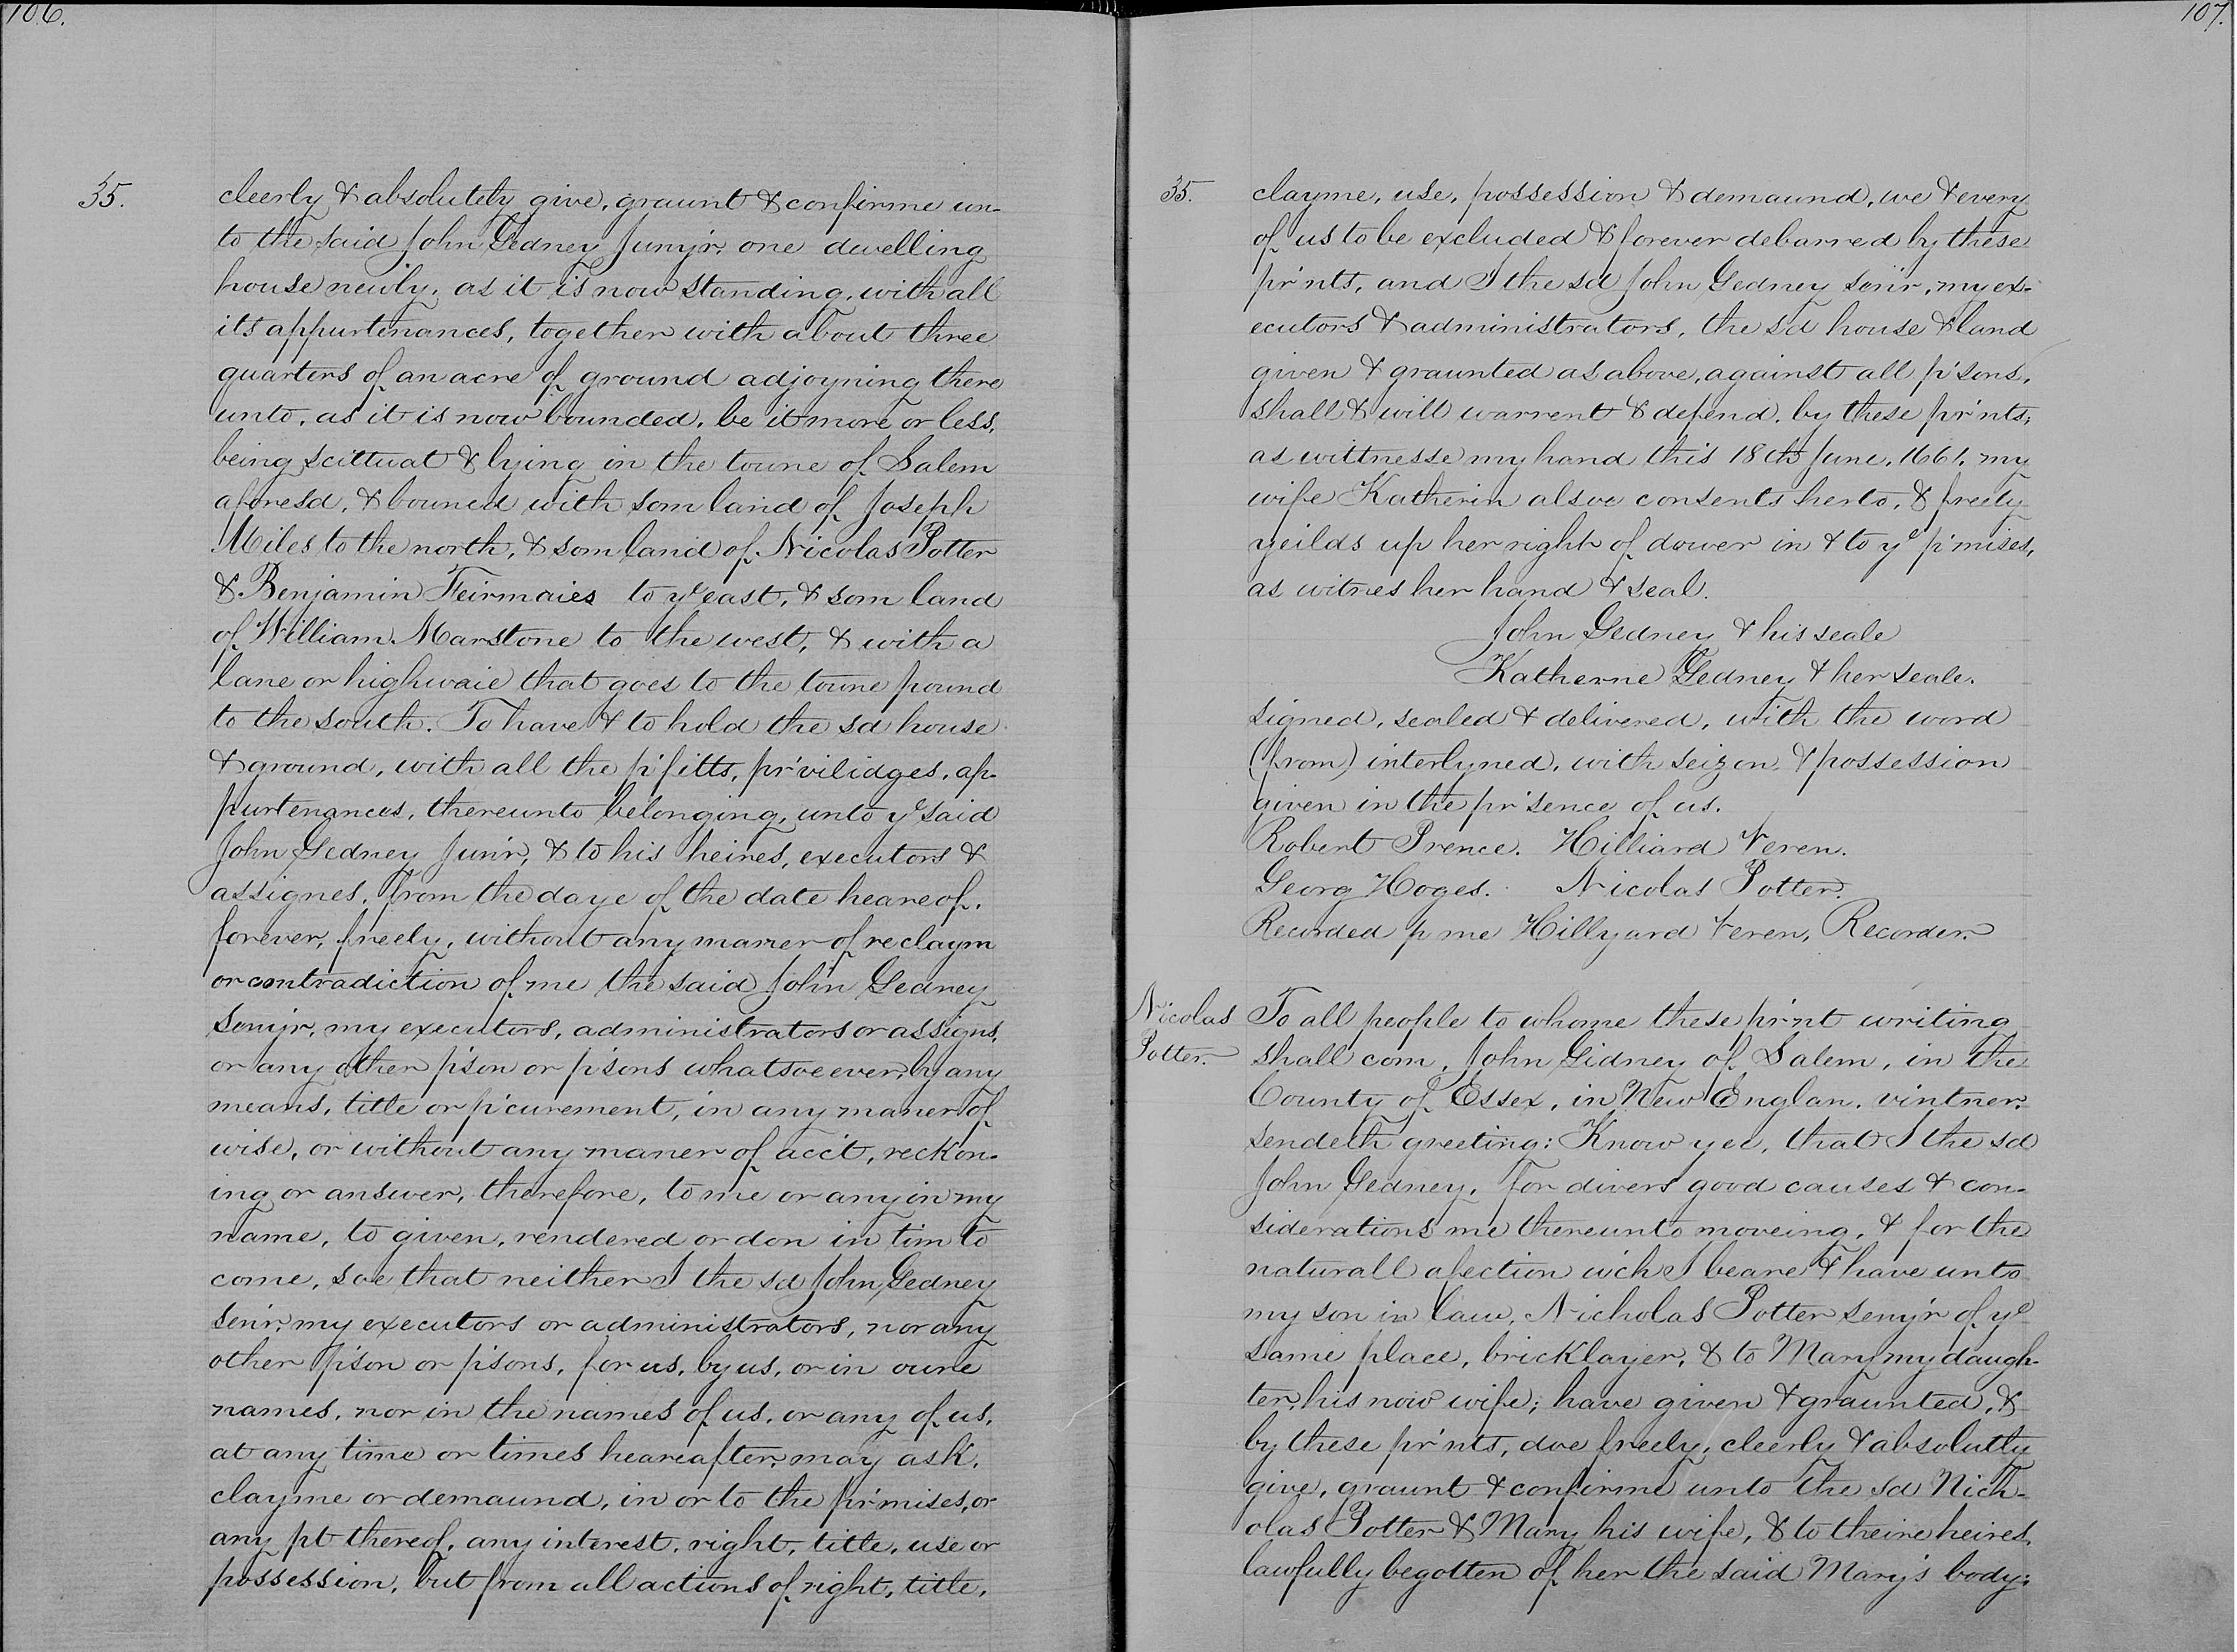 106.
35.
cleerly & absolutely give, graunt & confirme un-
to the said John Gedney Junyr. one dwelling
house newly, as it is now standing, with all
its appurtenances, together with about three
quarters of an acre of ground adjoyning there
unto, as it is now bounded, be it more or less,
being scittuat & lying in the toune of Salem
aforesd, & bouned with som land of Joseph
Miles to the north, & som land of Nicolas Potter
& Benjamin Feirmaies to ye east, & som land
of William Marstone to the west, & with a
lane or highwaie that goes to the toune pound
to the south. To have & to hold the sd house
& ground, with all the p'fitts, pr'vilidges, ap-
purtenances, thereunto belonging, unto ye said
John Gedney Jun'r, & to his heires, executors &
assignes, from the daye of the date heareof,
forever, freely, without any maner of reclaym
or contradiction of me the said John Gedney
Senyr, my executors, administrators or assigns,
or any other p'son or p'sons whatsoeever, by any
means, title or p'curement, in any maner of
wise, or without any maner of acc't, reckon-
ing or answer, therefore, to me or any in my
name, to given, rendered or don in tim to
come, soe that neither I the sd John Gedney
Sen'r, my executors or administrators, nor any
other p'son or p'sons, for us, by us, or in oure
names, nor in the names of us, or any of us,
at any time or times heareafter, may ask,
clayme or demaund, in or to the pr'mises, or
any pt thereof, any interest, right, title, use or
possession, but from all actions of right, title,
107.
35.
clayme, use, possession & demaund, we & every
of us to be excluded & forever debarred by these
pr'nts, and I the sd John Gedney sen'r, my ex-
ecutors & administrators, the s'd house & land
given & graunted as above, against all p'sons,
shall & will warrent & defend, by these pr'nts;
as wittnesse my hand this 18th June, 1661, my
wife Katherin alsoe consents herto, & freely
yeilds up her right of dower in & to ye p'mises,
as witnes her hand & seal.
John Gedney & his seale
Katherne Gedney & her seale.
signed, sealed & delivered, with the word
(from) interlyned, with seizon, & possession
given in the pr'sence of us.
Robert Prence. Hilliard Veren.
Georg Hoges. Nicolas Potter.
Recorded p me Hillyard Veren, Recorder.
Nicolas
Potter.
To all people to whome these pr'nt writing
shall com, John Gidney of Salem, in the
County of Essex, in New Englan, vintner,
sendeth greeting: Know yee, that I the sd
John Gedney, for divers good causes & con-
siderations me thereunto moveing, & for the
naturall afection w'ch I beare & have unto
my son in law, Nicholas Potter senyr of ye
same place, bricklayer, & to Mary my daugh-
ter, his now wife; have given & graunted, &
by these pr'nts, doe freely, cleerly & absolutly
give, graunt & confirme unto the sd Nich-
olas Potter & Mary his wife, & to theire heires,
lawfully begotten of her the said Mary's body;